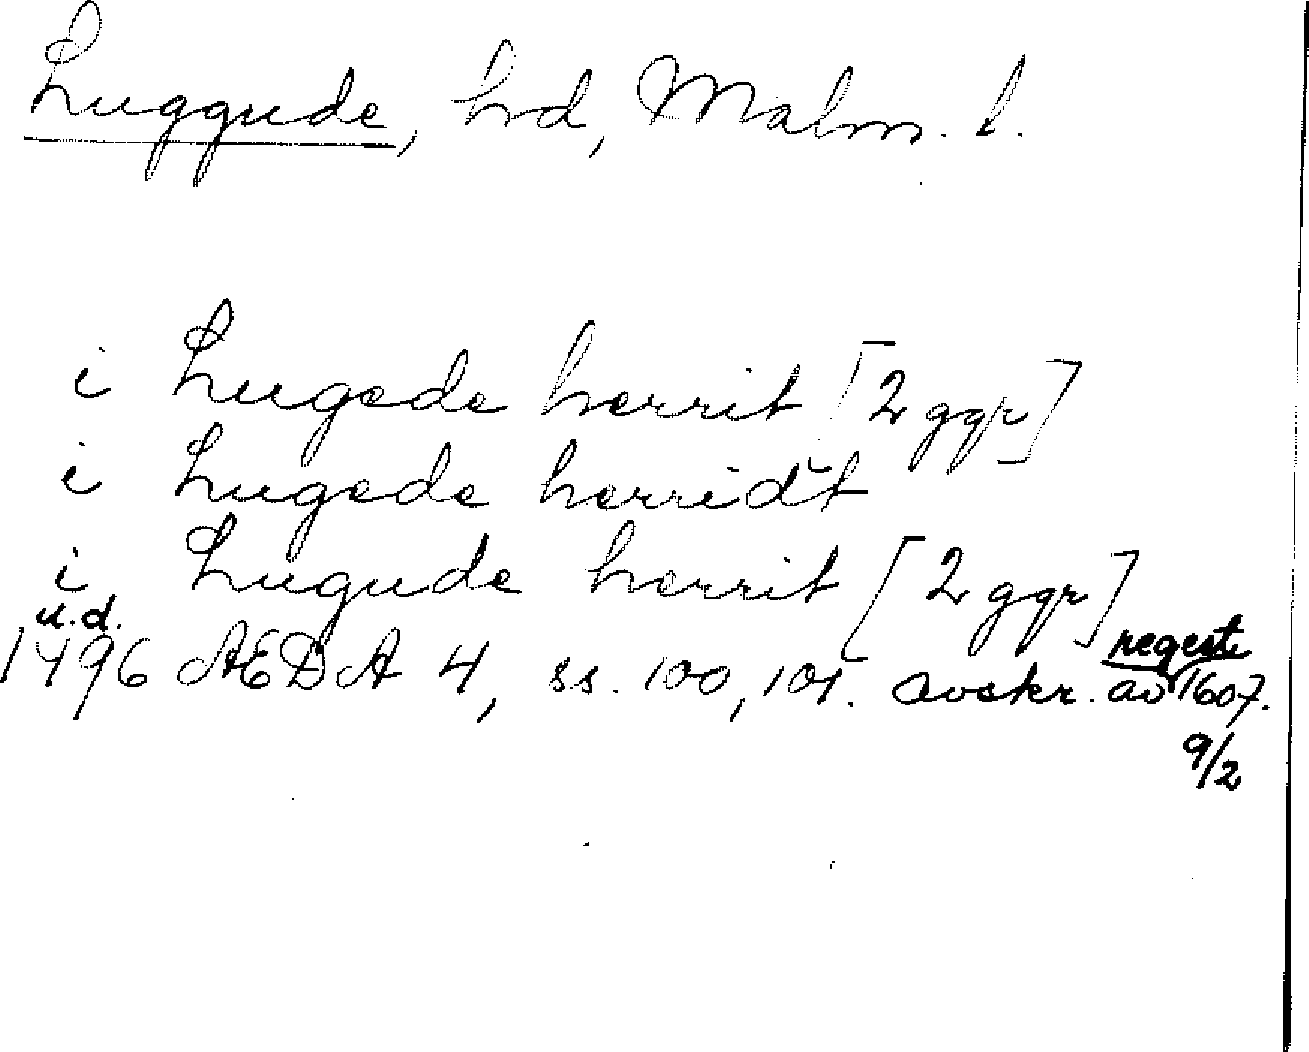 Luggude, hd, Malm. l.
i Lugede herrit [2 ggr]
i Lugede herridt
i Lugude herrit [2 ggr]
u.d.
1496 AEDA 4, ss. 100, 101. avskr. av regest 1607.
9/2